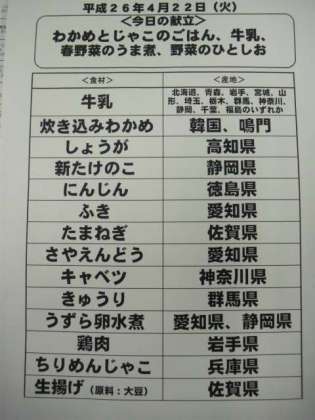 平成26年4月22日（火）
＜今日の献立＞
わかめとじゃこのごはん、牛乳、
春野菜のうま煮、野菜のひとしお
＜食材＞ ＜産地＞
牛乳 北海道、青森、岩手、宮城、山
形、埼玉、栃木、群馬、神奈川、
静岡、千葉、福島のいずれか
炊き込みわかめ 韓国、鳴門
しょうが 高知県
新たけのこ 静岡県
にんじん 徳島県
ふき 愛知県
たまねぎ 佐賀県
さやえんどう 愛知県
キャベツ 神奈川県
きゅうり 群馬県
うずら卵水煮 愛知県、静岡県
鶏肉 岩手県
ちりめんじゃこ 兵庫県
生揚げ（原料：大豆） 佐賀県